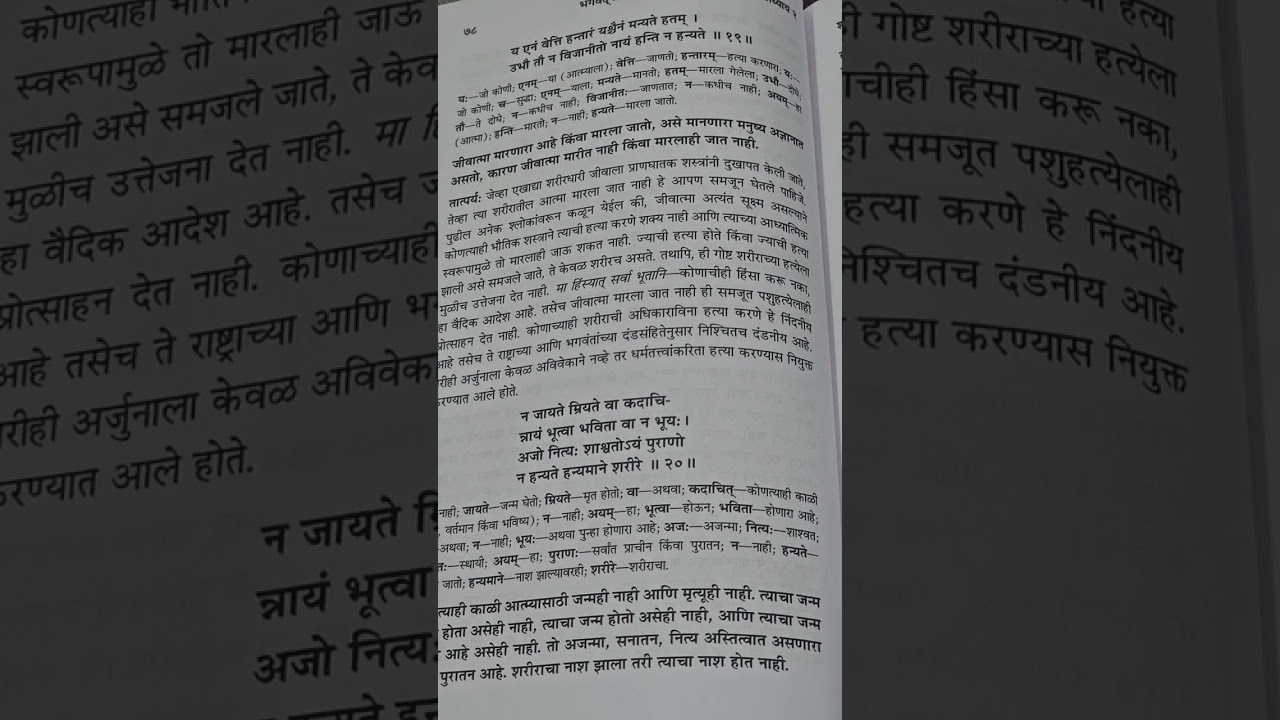 भगवद्
अध्याय २
७८
य एनं वेत्ति हन्तारं यश्चैनं मन्यते हतम् ।
उभौ तौ न विजानीतो नायं हन्ति न हन्यते ॥ १९॥
यः—जो कोणी; एनम्—या (आत्म्याला); वेत्ति—जाणतो; हन्तारम्—हत्या करणारा; यः—
जो कोणी; च—सुद्धा; एनम्—याला; मन्यते—मानतो; हतम्—मारला गेलेला; उभौ—दोघे;
तौ—ते दोघे; न—कधीच नाही; विजानीतः—जाणतात; न—कधीच नाही; अयम्—हा
(आत्मा); हन्ति—मारतो; न—नाही; हन्यते—मारला जातो.
जीवात्मा मारणारा आहे किंवा मारला जातो, असे मानणारा मनुष्य अज्ञानात
असतो, कारण जीवात्मा मारीत नाही किंवा मारलाही जात नाही.
तात्पर्य: जेव्हा एखाद्या शरीरधारी जीवाला प्राणघातक शस्त्रांनी दुखापत केली जाते,
तेव्हा त्या शरीरातील आत्मा मारला जात नाही हे आपण समजून घेतले पाहिजे.
पुढील अनेक श्लोकांवरून कळून येईल की, जीवात्मा अत्यंत सूक्ष्म असल्याने
कोणत्याही भौतिक शस्त्राने त्याची हत्या करणे शक्य नाही आणि त्याच्या आध्यात्मिक
स्वरूपामुळे तो मारलाही जाऊ शकत नाही. ज्याची हत्या होते किंवा ज्याची हत्या
झाली असे समजले जाते, ते केवळ शरीरच असते. तथापि, ही गोष्ट शरीराच्या हत्येला
मुळीच उत्तेजना देत नाही. मा हिंस्यात् सर्वा भूतानि—कोणाचीही हिंसा करू नका,
हा वैदिक आदेश आहे. तसेच जीवात्मा मारला जात नाही ही समजूत पशुहत्येलाही
प्रोत्साहन देत नाही. कोणाच्याही शरीराची अधिकाराविना हत्या करणे हे निंदनीय
आहे तसेच ते राष्ट्राच्या आणि भगवंतांच्या दंडसंहितेनुसार निश्चितच दंडनीय आहे.
रीही अर्जुनाला केवळ अविवेकाने नव्हे तर धर्मतत्त्वांकरिता हत्या करण्यास नियुक्त
करण्यात आले होते.
न जायते म्रियते वा कदाचि-
न्नायं भूत्वा भविता वा न भूयः ।
अजो नित्यः शाश्वतोऽयं पुराणो
न हन्यते हन्यमाने शरीरे ॥ २०॥
नाही; जायते—जन्म घेतो; म्रियते—मृत होतो; वा—अथवा; कदाचित्—कोणत्याही काळी
वर्तमान किंवा भविष्य); न—नाही; अयम्—हा; भूत्वा—होऊन; भविता—होणारा आहे;
अथवा; न—नाही; भूयः—अथवा पुन्हा होणारा आहे; अजः—अजन्मा; नित्यः—शाश्वत;
तः—स्थायी; अयम्—हा; पुराणः—सर्वांत प्राचीन किंवा पुरातन; न—नाही; हन्यते—
जातो; हन्यमाने—नाश झाल्यावरही; शरीरे—शरीराचा.
त्याही काळी आत्म्यासाठी जन्मही नाही आणि मृत्यूही नाही. त्याचा जन्म
होता असेही नाही, त्याचा जन्म होतो असेही नाही, आणि त्याचा जन्म
आहे असेही नाही. तो अजन्मा, सनातन, नित्य अस्तित्वात असणारा
पुरातन आहे. शरीराचा नाश झाला तरी त्याचा नाश होत नाही.